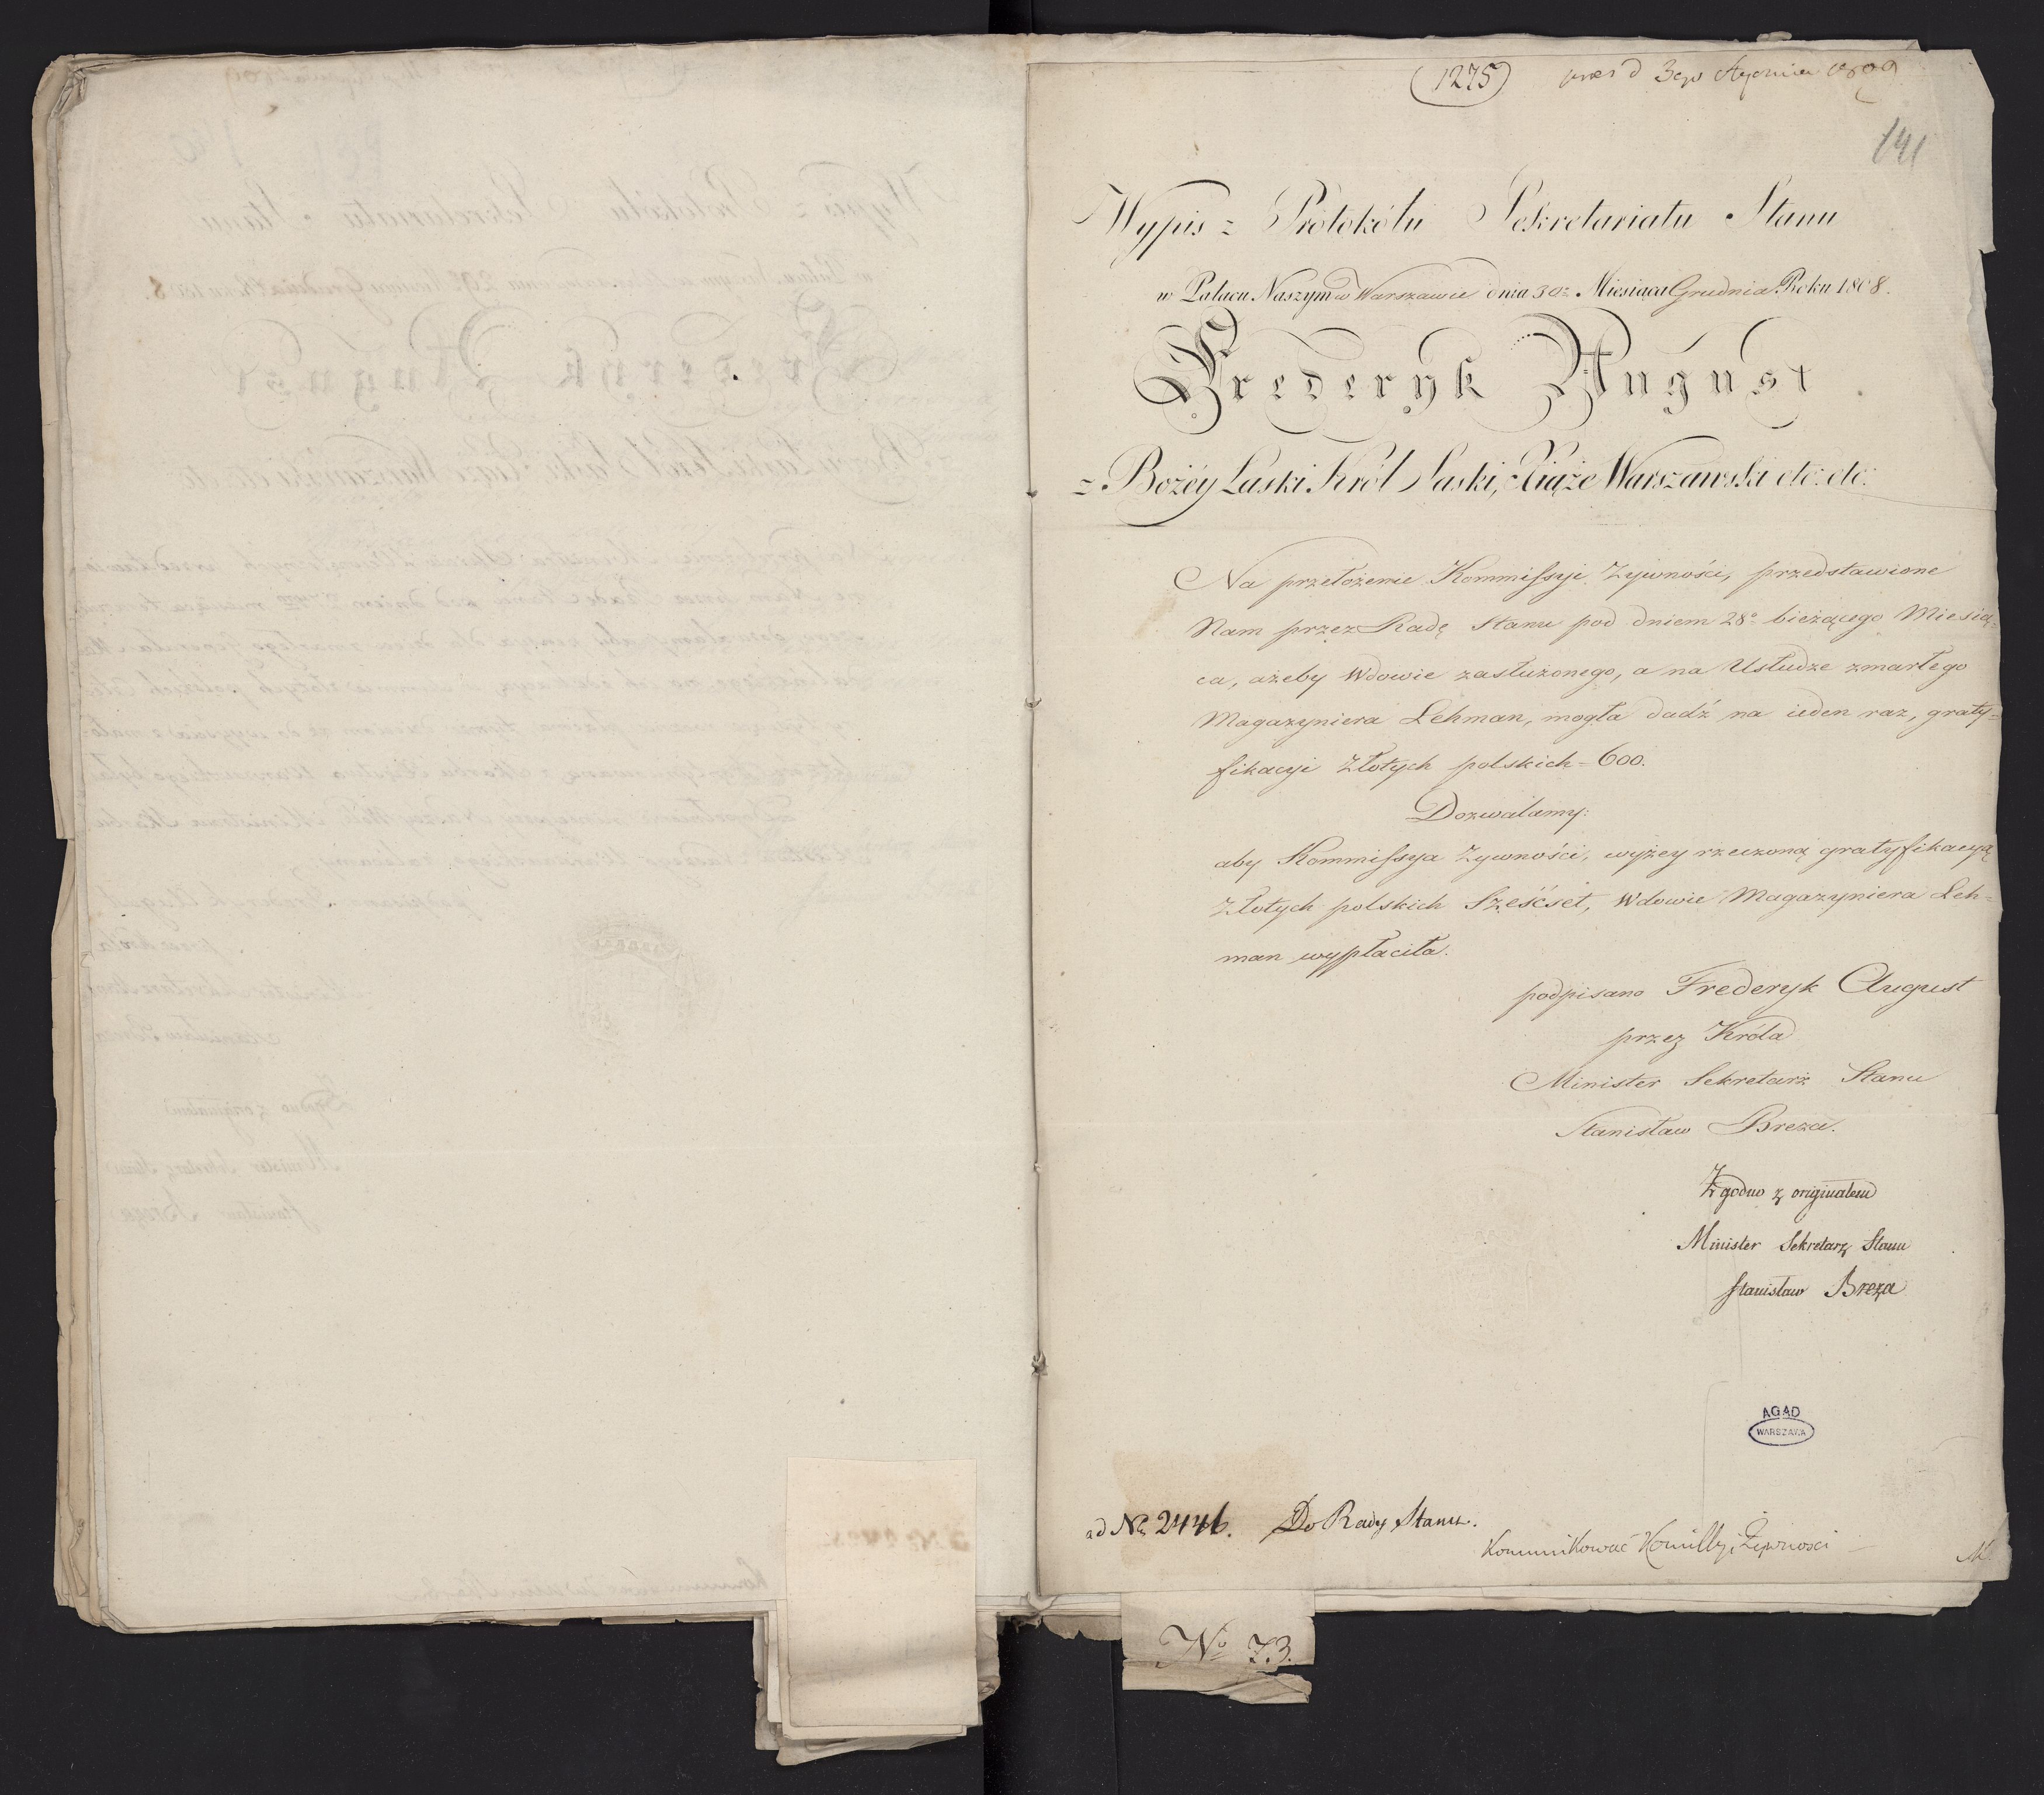 1275 pres d 3go Stycznia 1809
141
Wypis z Protokółu Sekretariatu Stanu
w Pałacu Naszym w Warszawie dnia 30: Miesiąca Grudnia Roku 1808.
Frederyk August
z Bożéy Łaski Król Saski, Xiąże Warszawski etc: etc:
Na przełożenie Kommissyi Żywności, przedstawione
Nam przez Radę Stanu pod dniem 28º bieżącego Miesią=
ca, ażeby Wdowie zasłużonego, a na Usłudze zmarłego
Magazyniera Lehman, mogła dadź na ieden raz, graty=
fikacyi Złotych polskich = 600.
Dozwalamy:
aby Kommissya Żywności, wyżey rzeczoną gratyfikacyą
Złotych polskich Sześćset, Wdowie Magazyniera Leh=
man wypłaciła.
podpisano Frederyk August
przez Króla
Minister Sekretarz Stanu
Stanisław Breza.
Zgodno z originałem
Minister Sekretarz Stanu
Stanisław Breza
AGAD
WARSZAWA
ad Nr 2446. Do Rady Stanu.
Kommunikować Kommissyi Żywności
No 73.